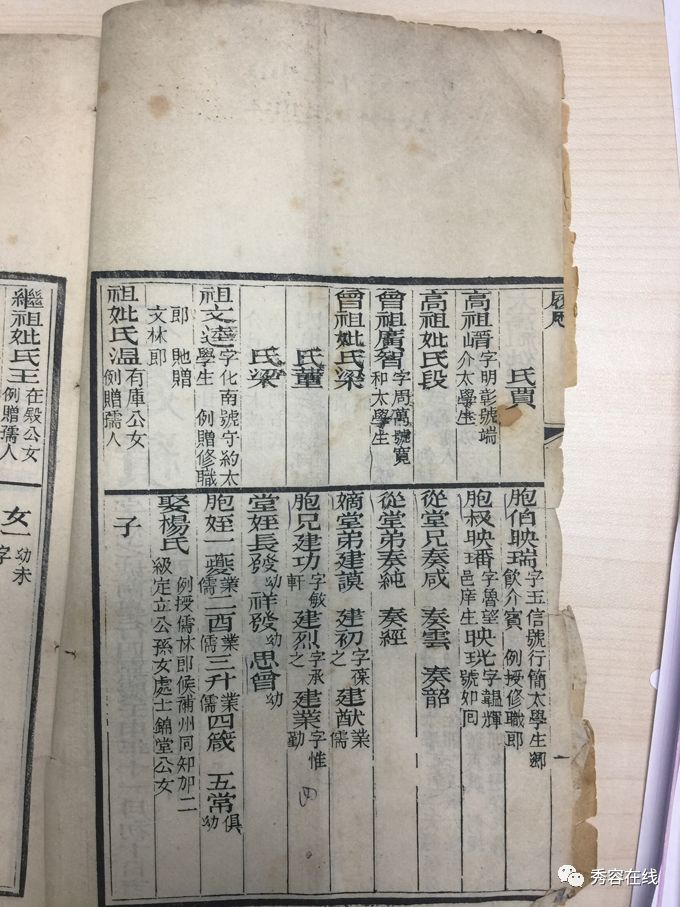 履歷
氏賈
高祖㟙字明彰號端
介太學生
高祖妣氏段
曾祖廣智字周萬號寬
和太學生
曾祖妣氏梁
氏董
氏梁
祖文逵字化南號守約太
學生 例贈修職
郎 貤贈
文林郎
祖妣氏温有庫公女
例贈孺人
胞伯映瑞字玉信號行簡太學生鄉
飲介賓 例授修職郎
胞叔映番字魯望映光字韞輝
邑庠生映玨號如囘
從堂兄奏咸 奏雲 奏韶
從堂弟奏純 奏經
嫡堂弟建謨 建初字葆之 建猷業儒
胞兄建功字敏軒 建烈字承之 建業字惟勤
堂姪長發幼 祥發幼 思曾幼
胞姪一夔業儒 二酉業儒 三升業儒 四箴 五常俱幼
娶楊氏例授儒林郎候補州同知加二
級定立公孫女處士錦堂公女
子
繼祖妣氏王在殿公女
例贈孺人
女一幼未
字
秀容在线